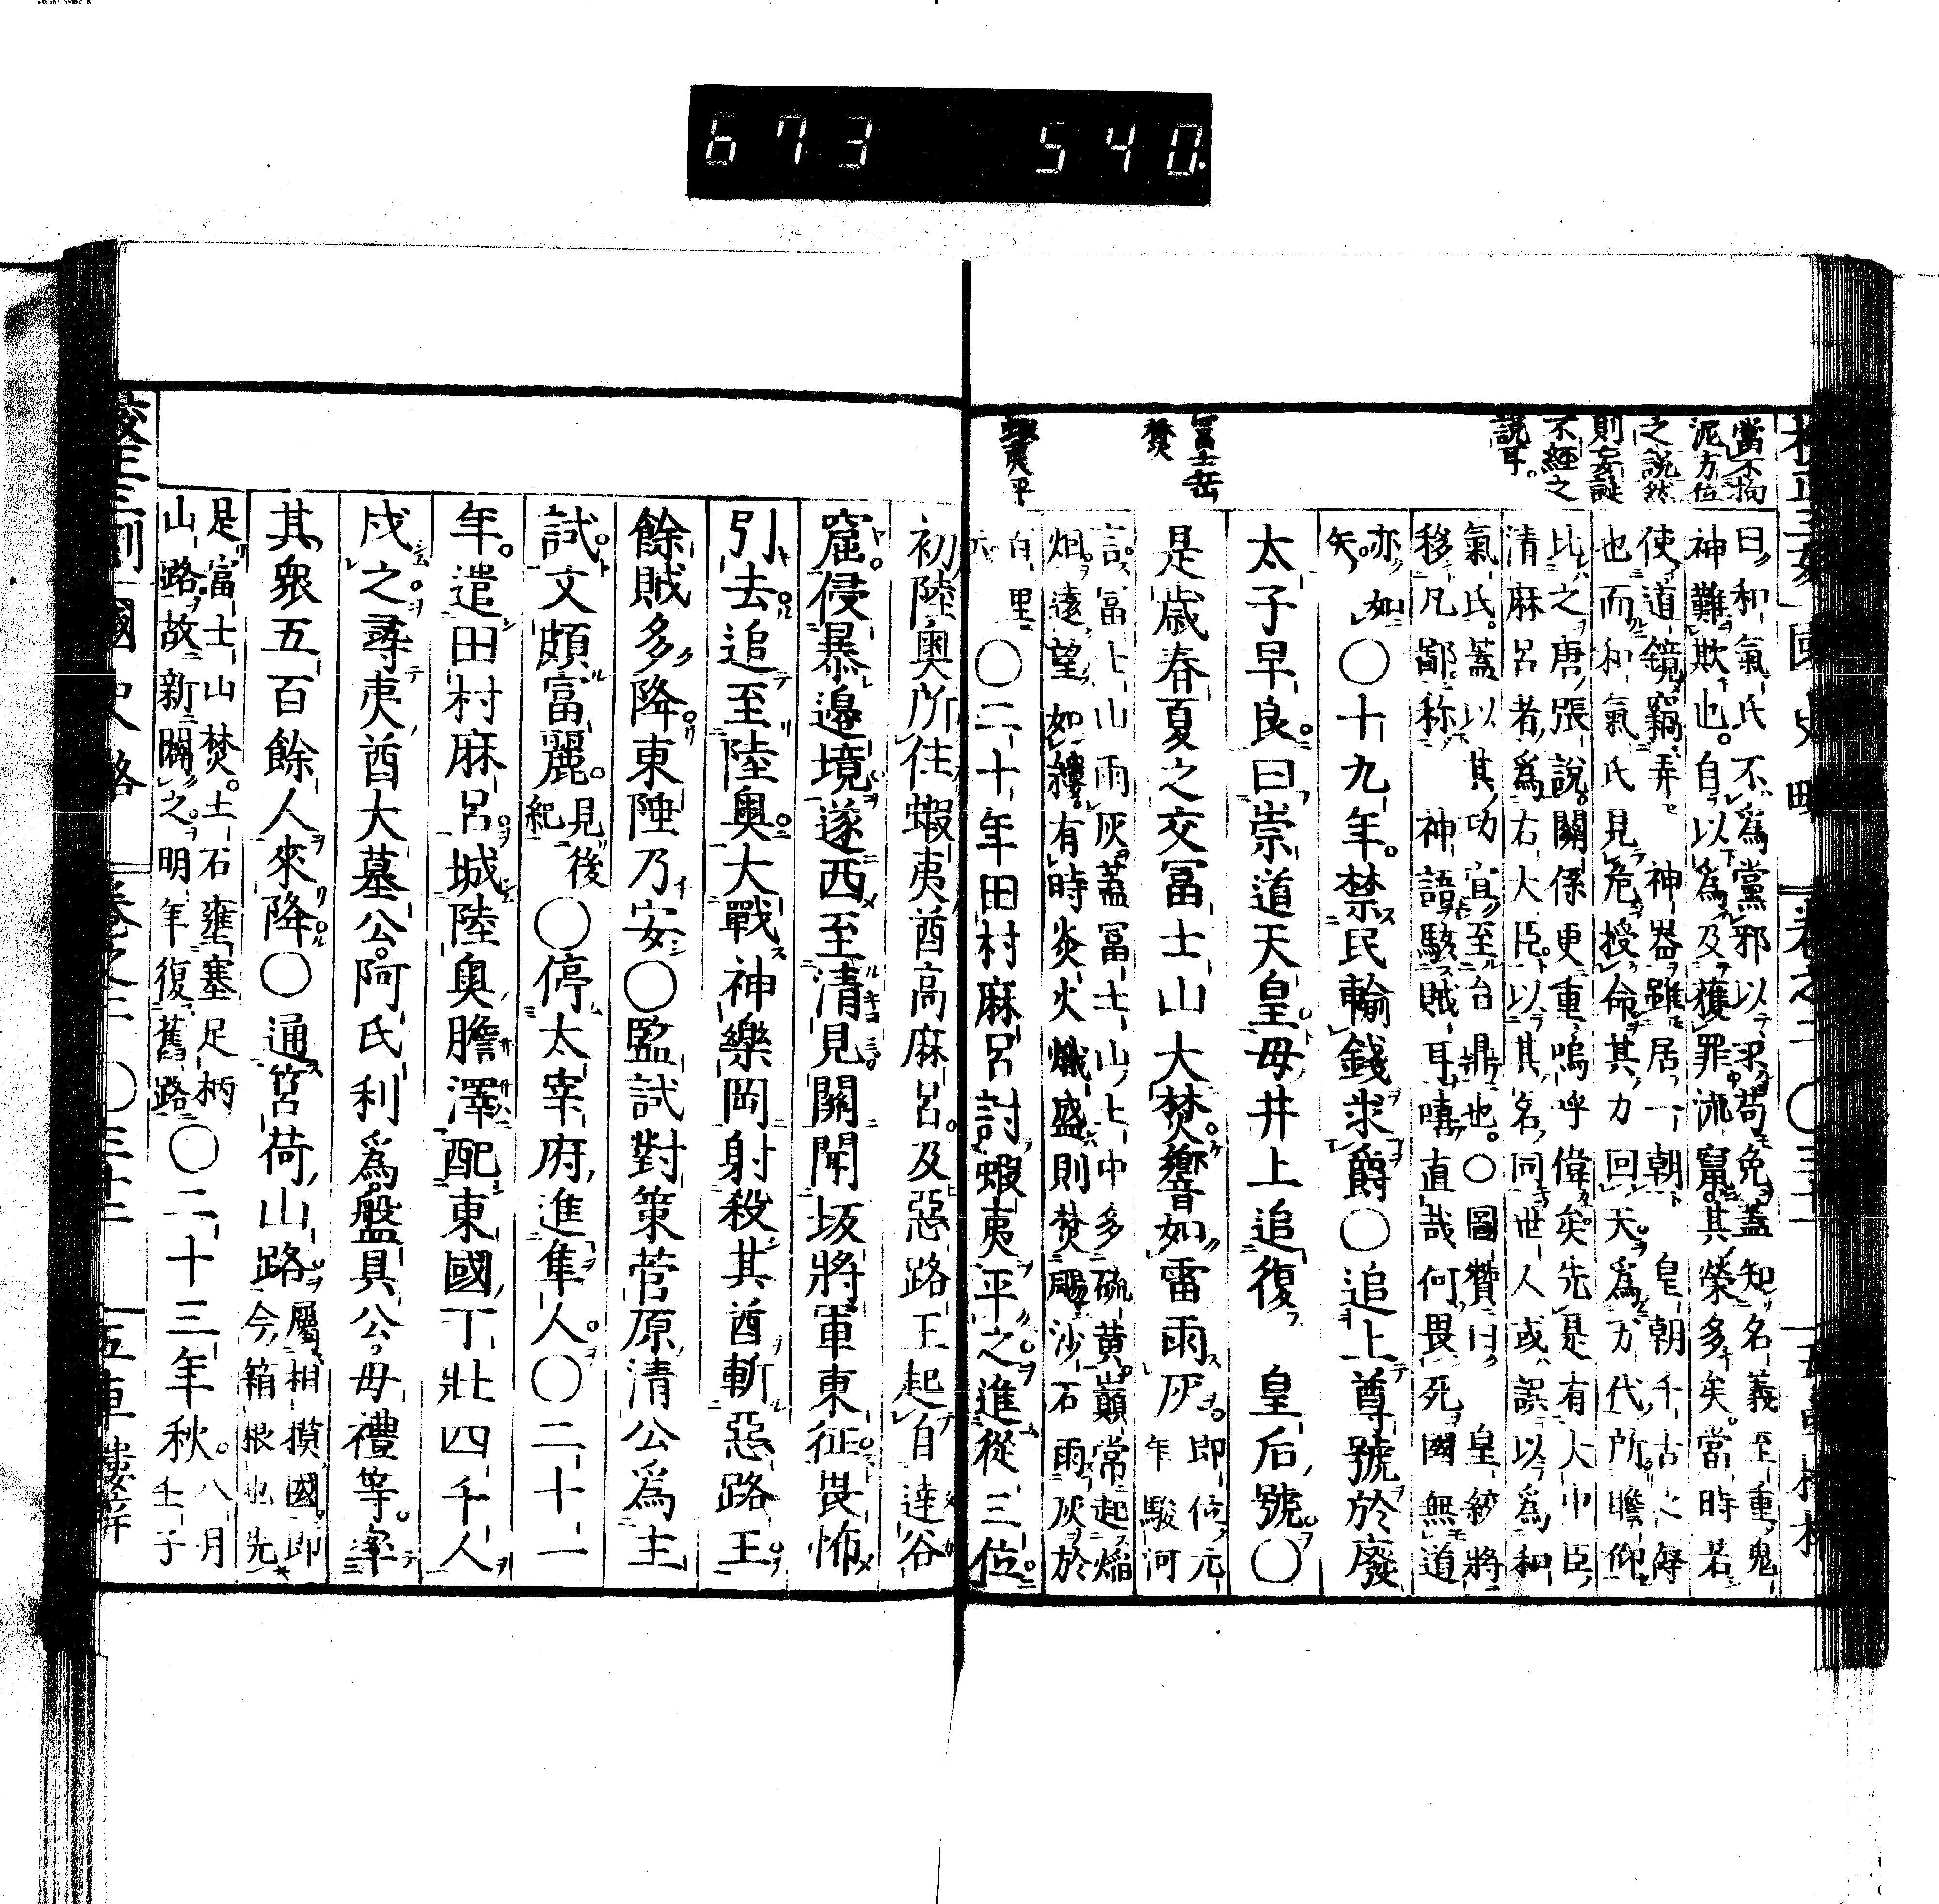 673 540.
當不拘
泥方位
之說然
則妄誕
不經之
說耳。
富士岳
焚
蝦夷平
國史略 卷之二 〇三十一
曰和氣氏不爲黨邪以求苟免蓋知名義至重鬼
神難欺也自以爲及獲罪流竄其榮多矣當時若
使道鏡竊弄 神器雖居一朝 皇朝千古之辱
也而和氣氏見危授命其力回天爲万代所瞻仰
比之唐張說關係更重嗚呼偉矣先是有大中臣
清麻呂者爲右大臣以其名同世人或誤以爲和
氣氏蓋以其功宜至台鼎也〇圖贊曰 皇綫將
移凡鄙称 神語駭賊耳嘻直哉何畏死國無道
亦如
矢
〇十九年禁民輸錢求爵〇追上尊號於廢
太子早良曰崇道天皇母井上追復 皇后號〇
是歲春夏之交冨士山大焚響如雷雨灰
即位元
年駿河
言冨士山雨灰蓋冨士山上中多硫黄巔常起烟
烟遠望如縷有時炎火熾盛則焚颺沙石雨灰於
百里
〇二十年田村麻呂討蝦夷平之進從三位
初陸奥所住蝦夷酋高麻呂及惡路王起自達谷
窟侵暴邉境遂西至清見關聞坂將軍東征畏怖
引去追至陸奥大戰神樂岡射殺其酋斬惡路王
餘賊多降東陲乃安〇監試對策菅原清公爲主
試文頗富麗
見後
紀
〇停太宰府進隼人〇二十一
年遣田村麻呂城陸奥膽澤配東國丁壯四千人
戍之尋夷酋大墓公阿氏利爲盤具公母禮等率
其衆五百餘人來降〇通筥荷山路
屬相摸國即
今箱根也先
是富士山焚土石壅塞足柄
山路故新闢之明年復舊路
〇二十三年秋八月壬子
國史略 卷之二 〇三十二 五車樓梓